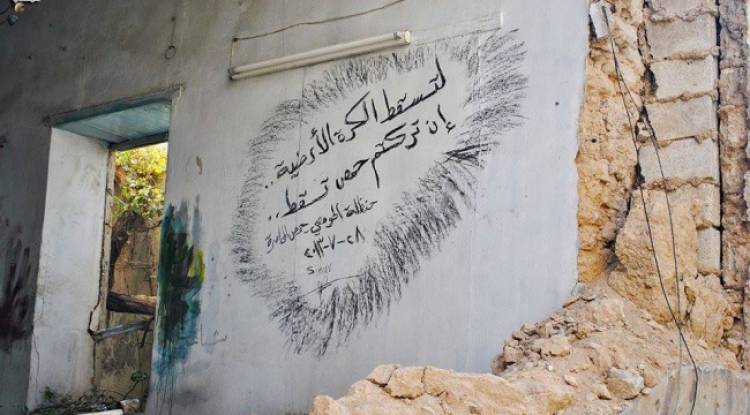 لتسقط الكرة الأرضية..
إن تركتم حمص تسقط..
حنظلة الحومصي حمص المحاصرة
٢٨-٧-٢٠١٣